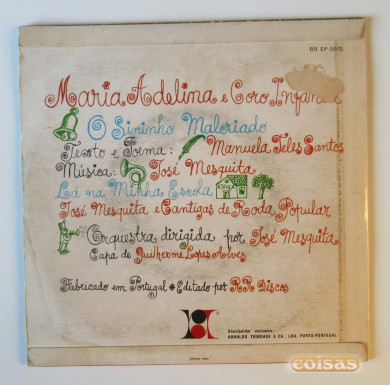 RR EP 0005
Maria Adelina e Coro Infantil
O Sininho Maloriado
Texto e Poema: Manuela Teles Santos
Música: José Mesquita
Lá na Minha Escola
José Mesquita e Cantigas de Roda Popular
Orquestra dirigida por José Mesquita
Capa de Guilherme Lopes Alves
Fabricado em Portugal * Editado por RR Discos
Distribuidor exclusivo:
ARNALDO TRINDADE & CA., LDA. PORTO-PORTUGAL
coisas